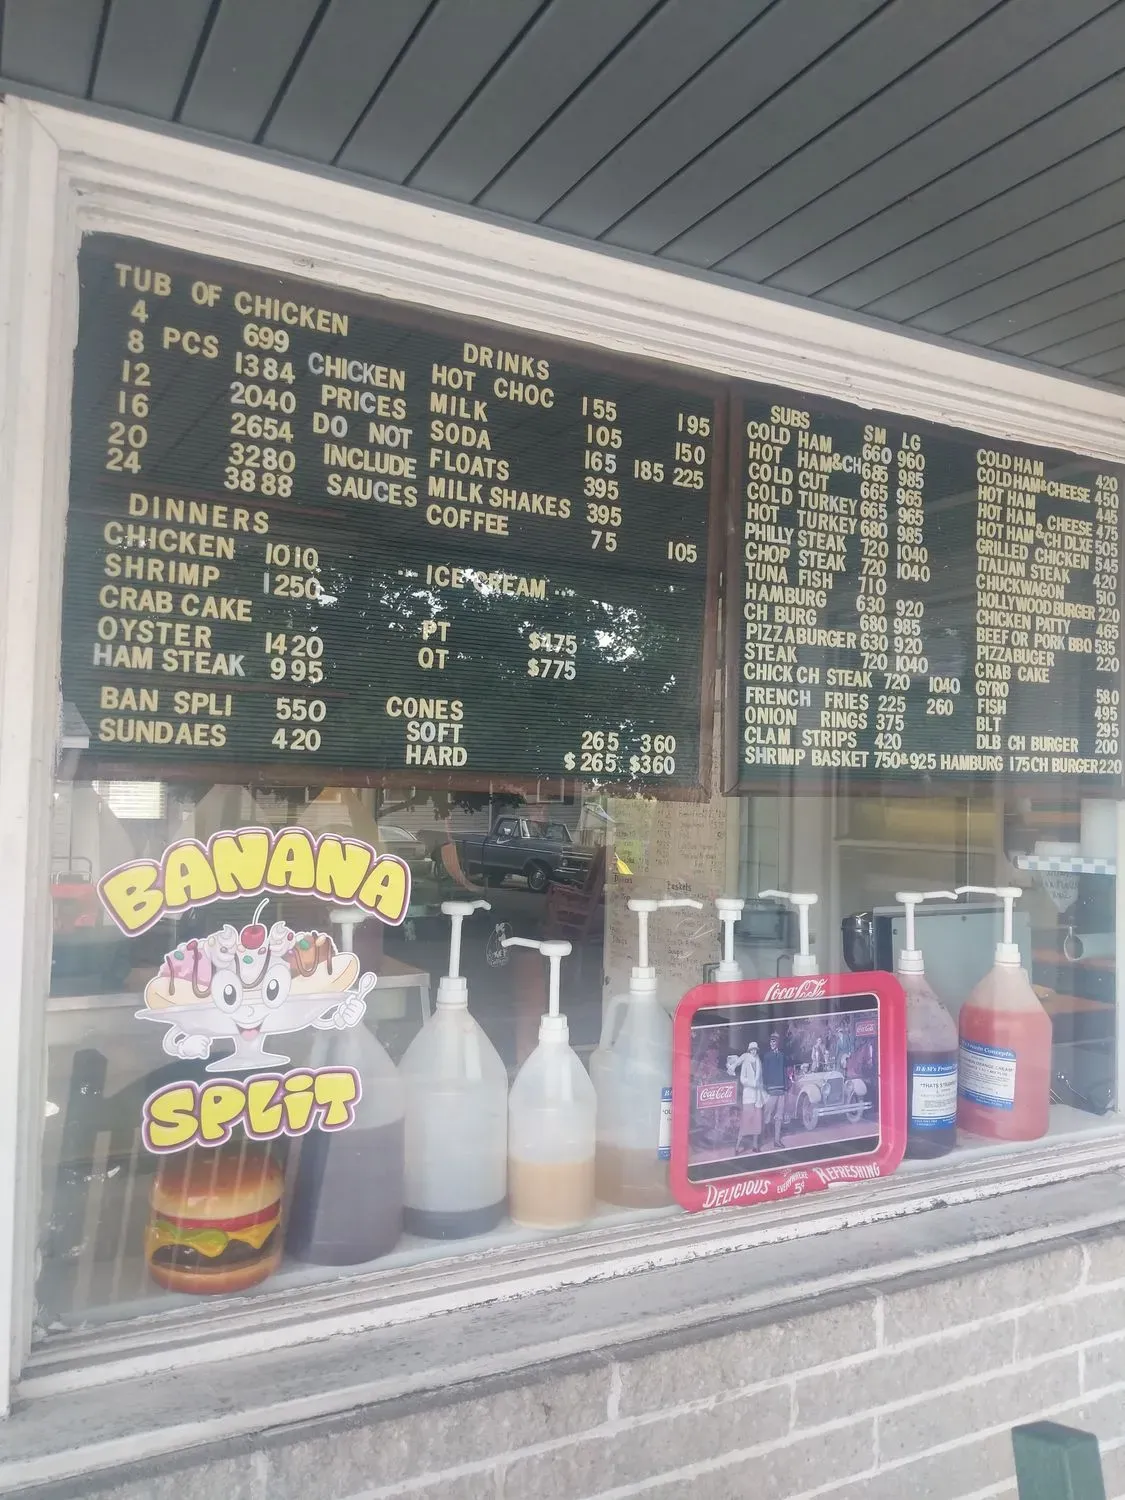 TUB OF CHICKEN
4 699
8 PCS 1384
12 2040
16 2654
20 3280
24 3888
CHICKEN
PRICES
DO NOT
INCLUDE
SAUCES
DINNERS
CHICKEN 1010
SHRIMP 1250
CRAB CAKE
OYSTER 1420
HAM STEAK 995
BAN SPLI 550
SUNDAES 420
DRINKS
HOT CHOC 155 195
MILK 105 150
SODA 165 185 225
FLOATS 395
MILK SHAKES 395
COFFEE 75 105
ICE CREAM
PT $475
QT $775
CONES
SOFT 265 360
HARD $265 $360
SUBS SM LG
COLD HAM 660 960
HOT HAM&CH 685 985
COLD CUT 665 965
COLD TURKEY 665 965
HOT TURKEY 680 985
PHILLY STEAK 720 1040
CHOP STEAK 720 1040
TUNA FISH 710
HAMBURG 630 920
CH BURG 680 985
PIZZABURGER 630 920
STEAK 720 1040
CHICK CH STEAK 720 1040
FRENCH FRIES 225 260
ONION RINGS 375
CLAM STRIPS 420
SHRIMP BASKET 750&925
COLD HAM 420
COLD HAM&CHEESE 450
HOT HAM 445
HOT HAM CHEESE 475
HOT HAM&CH DLXE 505
GRILLED CHICKEN 545
ITALIAN STEAK 420
CHUCKWAGON 510
HOLLYWOOD BURGER 220
CHICKEN PATTY 465
BEEF OR PORK BBQ 535
PIZZABUGER 220
CRAB CAKE
GYRO 580
FISH 495
BLT 295
DLB CH BURGER 200
HAMBURG 175 CH BURGER 220
BANANA
SPLIT
Baskets
Coca-Cola
Coca-Cola
Coca-Cola
DELICIOUS EVERYWHERE 5¢ REFRESHING
B&M's Frozen
"THATS
Frozen Concepts